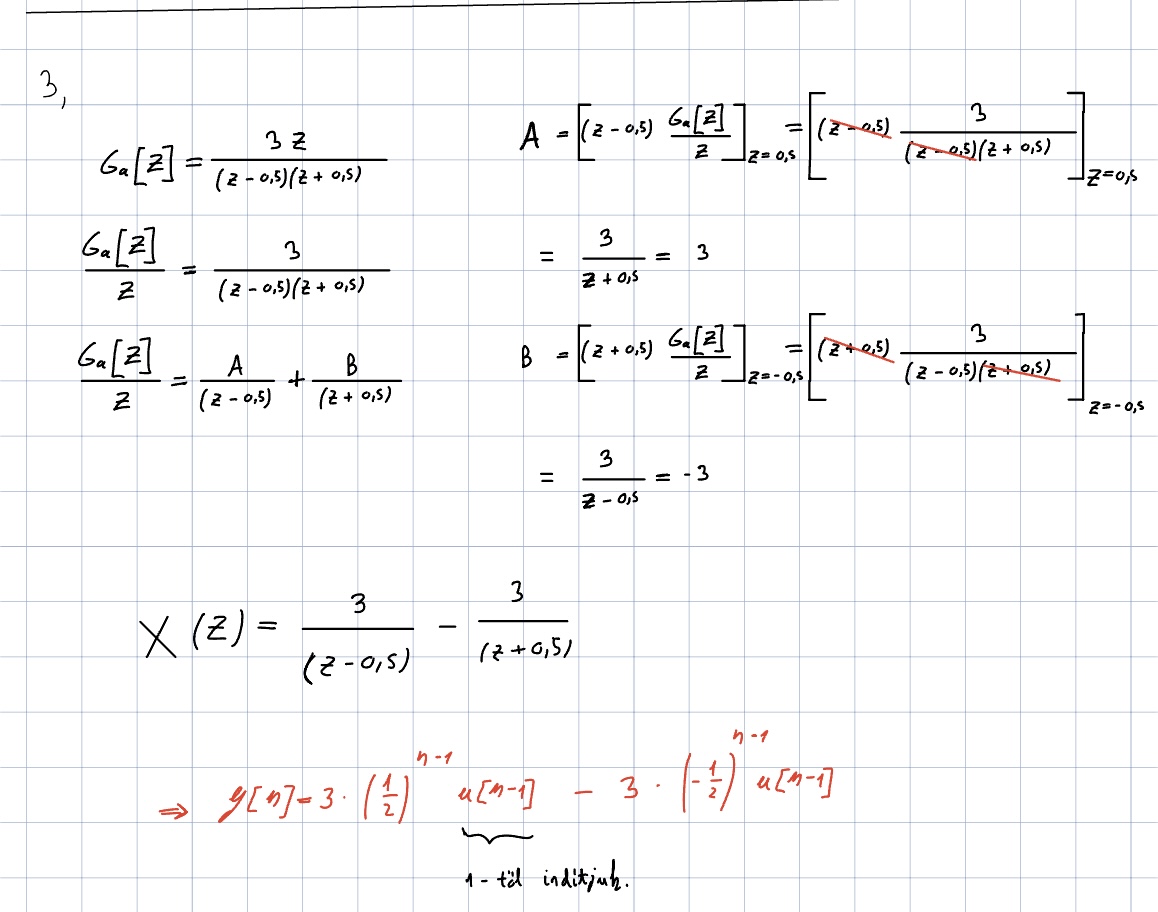 3,
Ga[z] = 3z / ((z - 0,5)(z + 0,5))
Ga[z] / z = 3 / ((z - 0,5)(z + 0,5))
Ga[z] / z = A / (z - 0,5) + B / (z + 0,5)
A = [(z - 0,5) Ga[z] / z] z=0,5 = [(z - 0,5) 3 / ((z - 0,5)(z + 0,5))] z=0,5
= 3 / (z + 0,5) = 3
B = [(z + 0,5) Ga[z] / z] z=-0,5 = [(z + 0,5) 3 / ((z - 0,5)(z + 0,5))] z=-0,5
= 3 / (z - 0,5) = -3
X(z) = 3 / (z - 0,5) - 3 / (z + 0,5)
⇒ y[n] = 3 · (1/2)^(n-1) u[n-1] - 3 · (-1/2)^(n-1) u[n-1]
1-től indítjuk.